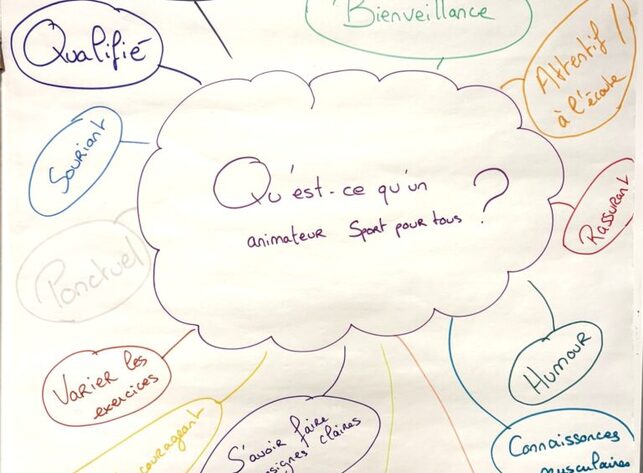 Bienveillance
Qualifié
Attentif /
à l'écoute
Souriant
Qu'est-ce qu'un
animateur Sport pour tous ?
Rassurant
Ponctuel
Humour
Varier les
exercices
courageant
S'avoir faire
signes claires
Connaissances
musculaires